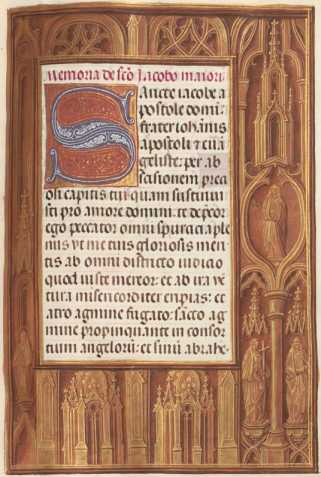 Memoria de scō Jacobo maiori
Sancte iacobe a
postole domi:
frater iohānis
apostoli ⁊ euā
geliste: per ab
scasionem preci
osi capitis tui quam sustinui
sti pro amore domini: te deprecor
ego peccator omni spurcicia ple
nus vt me tuis gloriosis meri
tis ab omni districto iudicio
quod iuste mereor: et ab ira vē
tura misericorditer eripias: et
atro agmine fugato: sācto ag
mine propinquante in consor
cium angelorū: et sinū abrahe